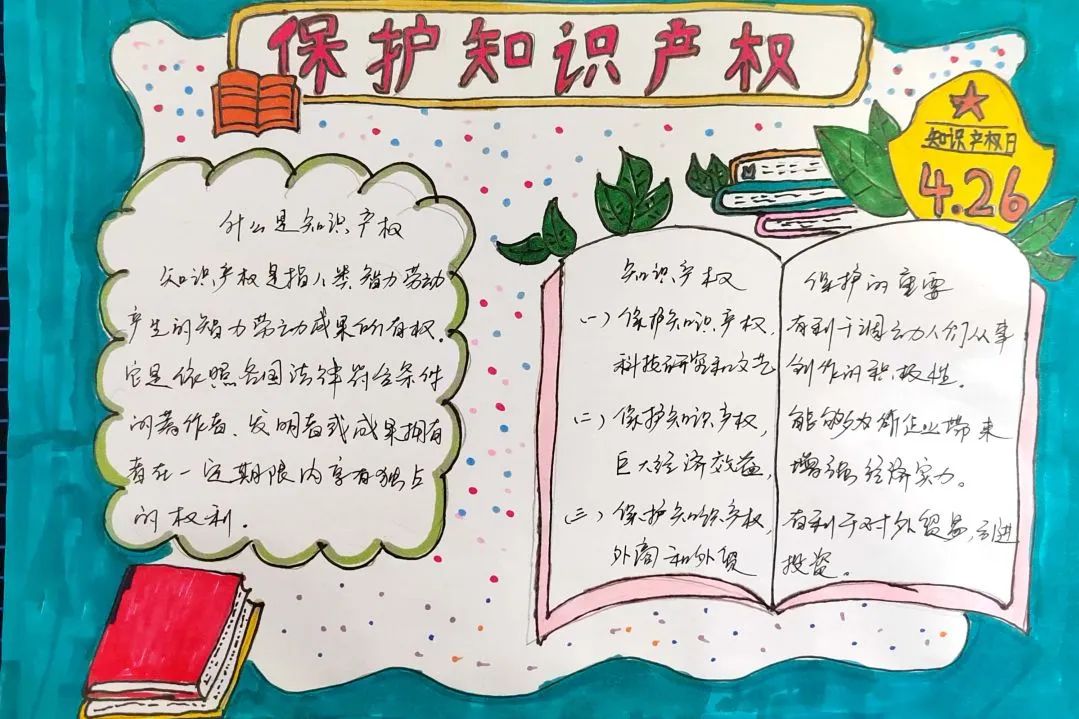 保护知识产权
知识产权日
4.26
什么是知识产权
知识产权是指人类智力劳动
产生的智力劳动成果所有权。
它是依照各国法律符合条件
的著作者、发明者或成果拥有
者在一定期限内享有独占
的权利。
知识产权 保护的重要
(一)保护知识产权,有利于调动人们从事
科技研究和文艺创作的积极性。
(二)保护知识产权,能够为企业带来
巨大经济效益,增强经济实力。
(三)保护知识产权,有利于对外贸易,引进
外商和外贸投资。